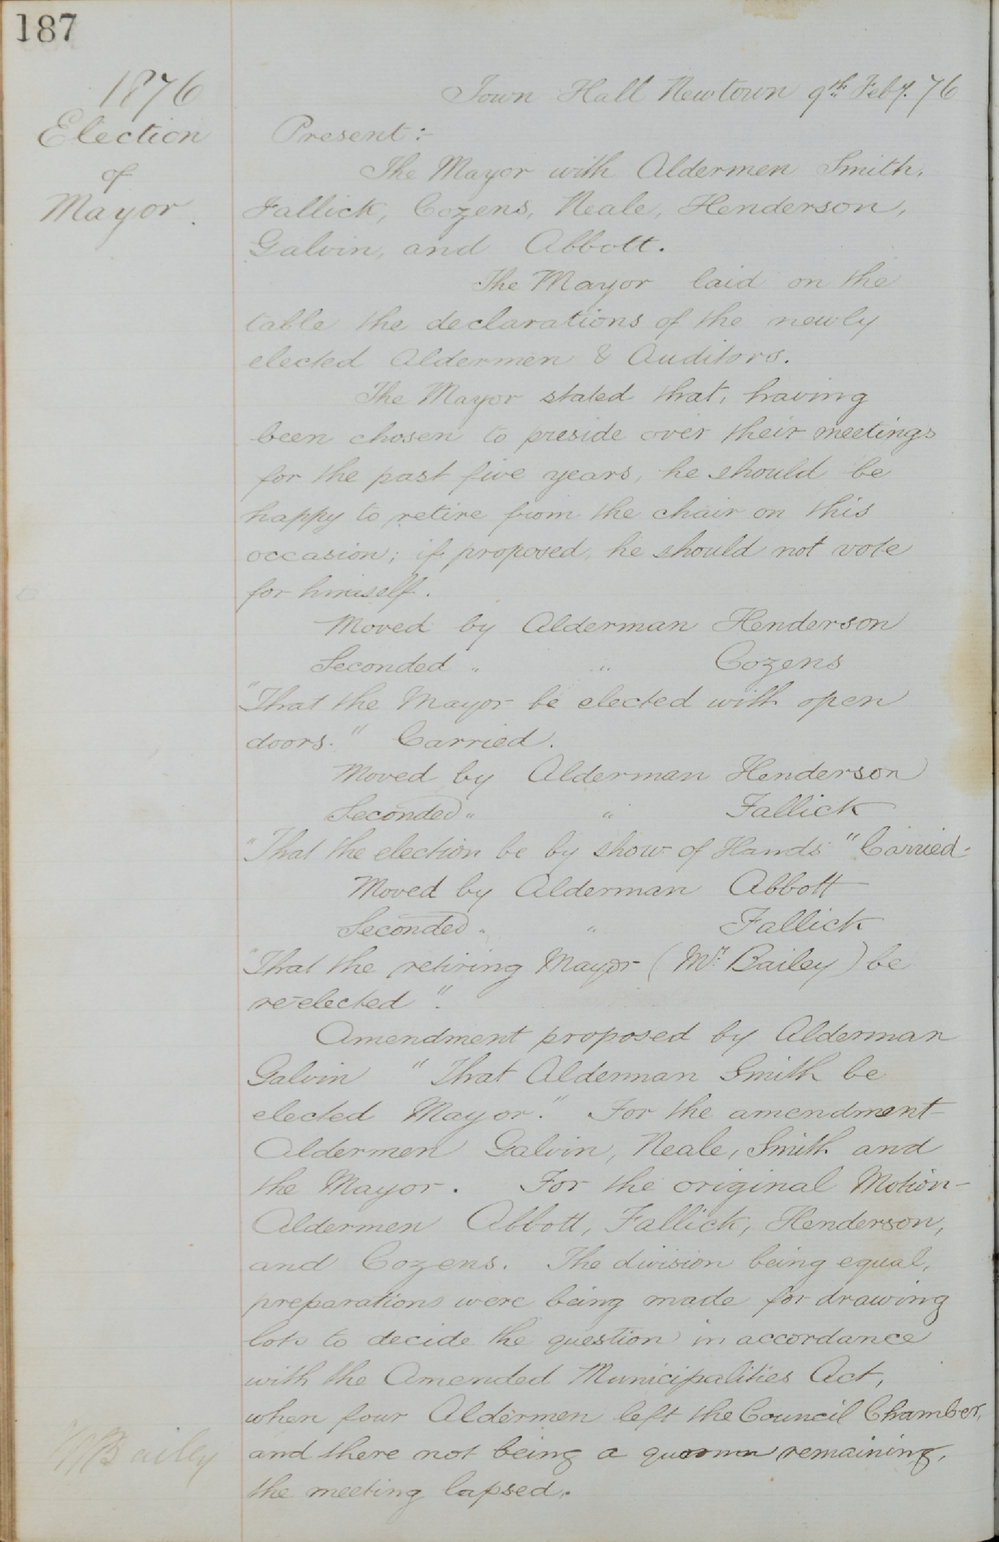 187
1876
Election
of
Mayor.
Town Hall Newtown 9th Feby. 76
Present:-
The Mayor with Aldermen Smith,
Fallick, Cozens, Neale, Henderson,
Galvin, and Abbott.
The Mayor laid on the
table the declarations of the newly
elected Aldermen & Auditors.
The Mayor stated that, having
been chosen to preside over their meetings
for the past five years, he should be
happy to retire from the chair on this
occasion; if proposed, he should not vote
for himself.
Moved by Alderman Henderson
Seconded " " Cozens
"That the Mayor be elected with open
doors." Carried.
Moved by Alderman Henderson
Seconded " " Fallick
"That the election be by show of Hands" Carried-
Moved by Alderman Abbott
Seconded " " Fallick
"That the retiring Mayor (Mr. Bailey) be
re-elected".
Amendment proposed by Alderman
Galvin "That Alderman Smith be
elected Mayor." For the amendment-
Aldermen Galvin, Neale, Smith and
the Mayor. For the original Motion-
Aldermen Abbott, Fallick, Henderson,
and Cozens. The division being equal,
preparations were being made for drawing
lots to decide the question in accordance
with the Amended Municipalities Act,
when four Aldermen left the Council Chamber,
and there not being a quorum remaining,
the meeting lapsed.
W Bailey